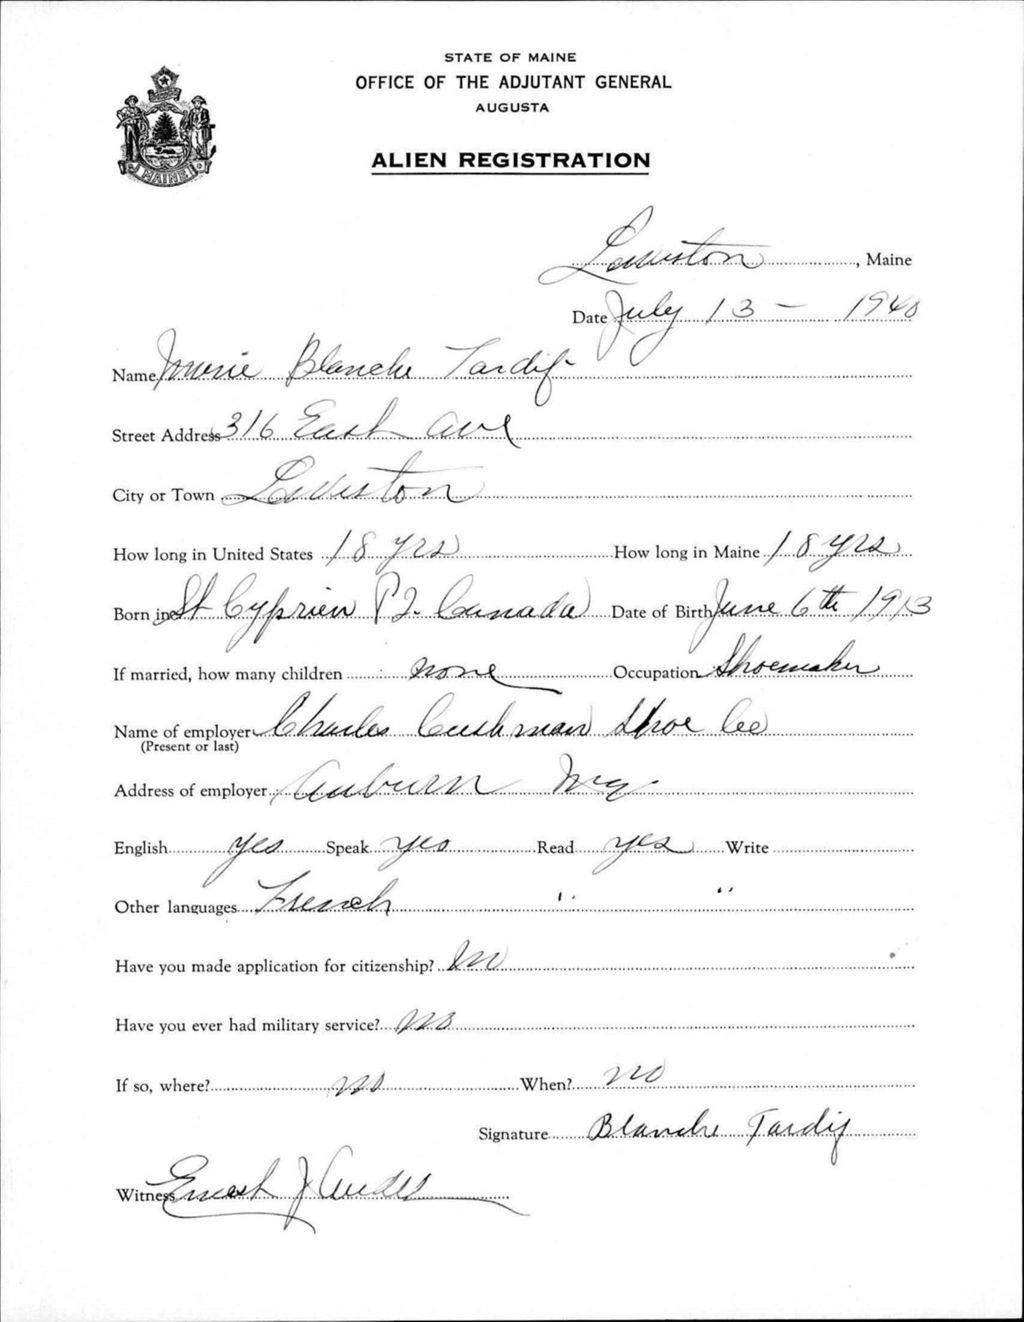 STATE OF MAINE
OFFICE OF THE ADJUTANT GENERAL
AUGUSTA
MAINE
ALIEN REGISTRATION
Lewiston, Maine
Date July 13 - 1940
Name Marie Blanche Tardif
Street Address 316 East Ave
City or Town Lewiston
How long in United States 18 yrs How long in Maine 18 yrs
Born in St Cyprien P Q. Canada Date of Birth June 6th 1913
If married, how many children none Occupation Shoemaker
Name of employer Charles Cushman Shoe Co
(Present or last)
Address of employer Auburn Me
English yes Speak yes Read yes Write
Other languages French " "
Have you made application for citizenship? No
Have you ever had military service? No
If so, where? no When? no
Signature Blanche Tardif
Witness Ernest J